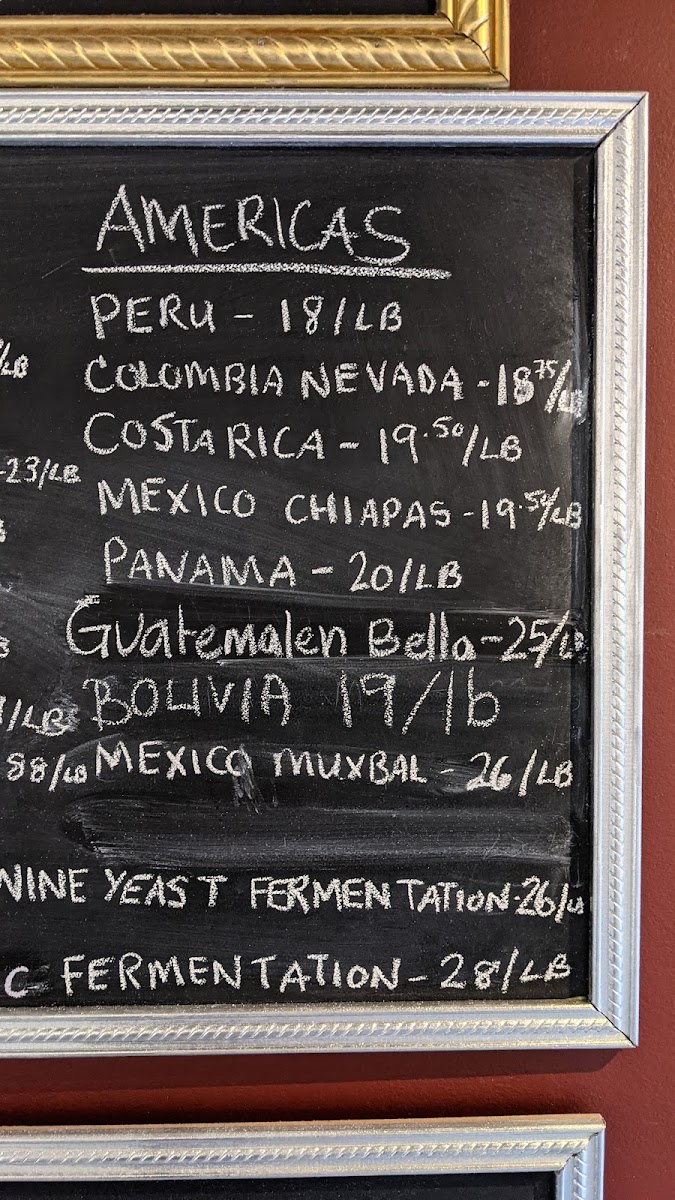 AMERICAS
PERU - 18/LB
COLOMBIA NEVADA - 18.75/LB
COSTA RICA - 19.50/LB
MEXICO CHIAPAS - 19.50/LB
PANAMA - 20/LB
Guatemalen Bella - 25/LB
BOLIVIA 19/lb
MEXICO MUXBAL - 26/LB
WINE YEAST FERMENTATION - 26/LB
C FERMENTATION - 28/LB
/LB
-23/LB
/LB
88/LB